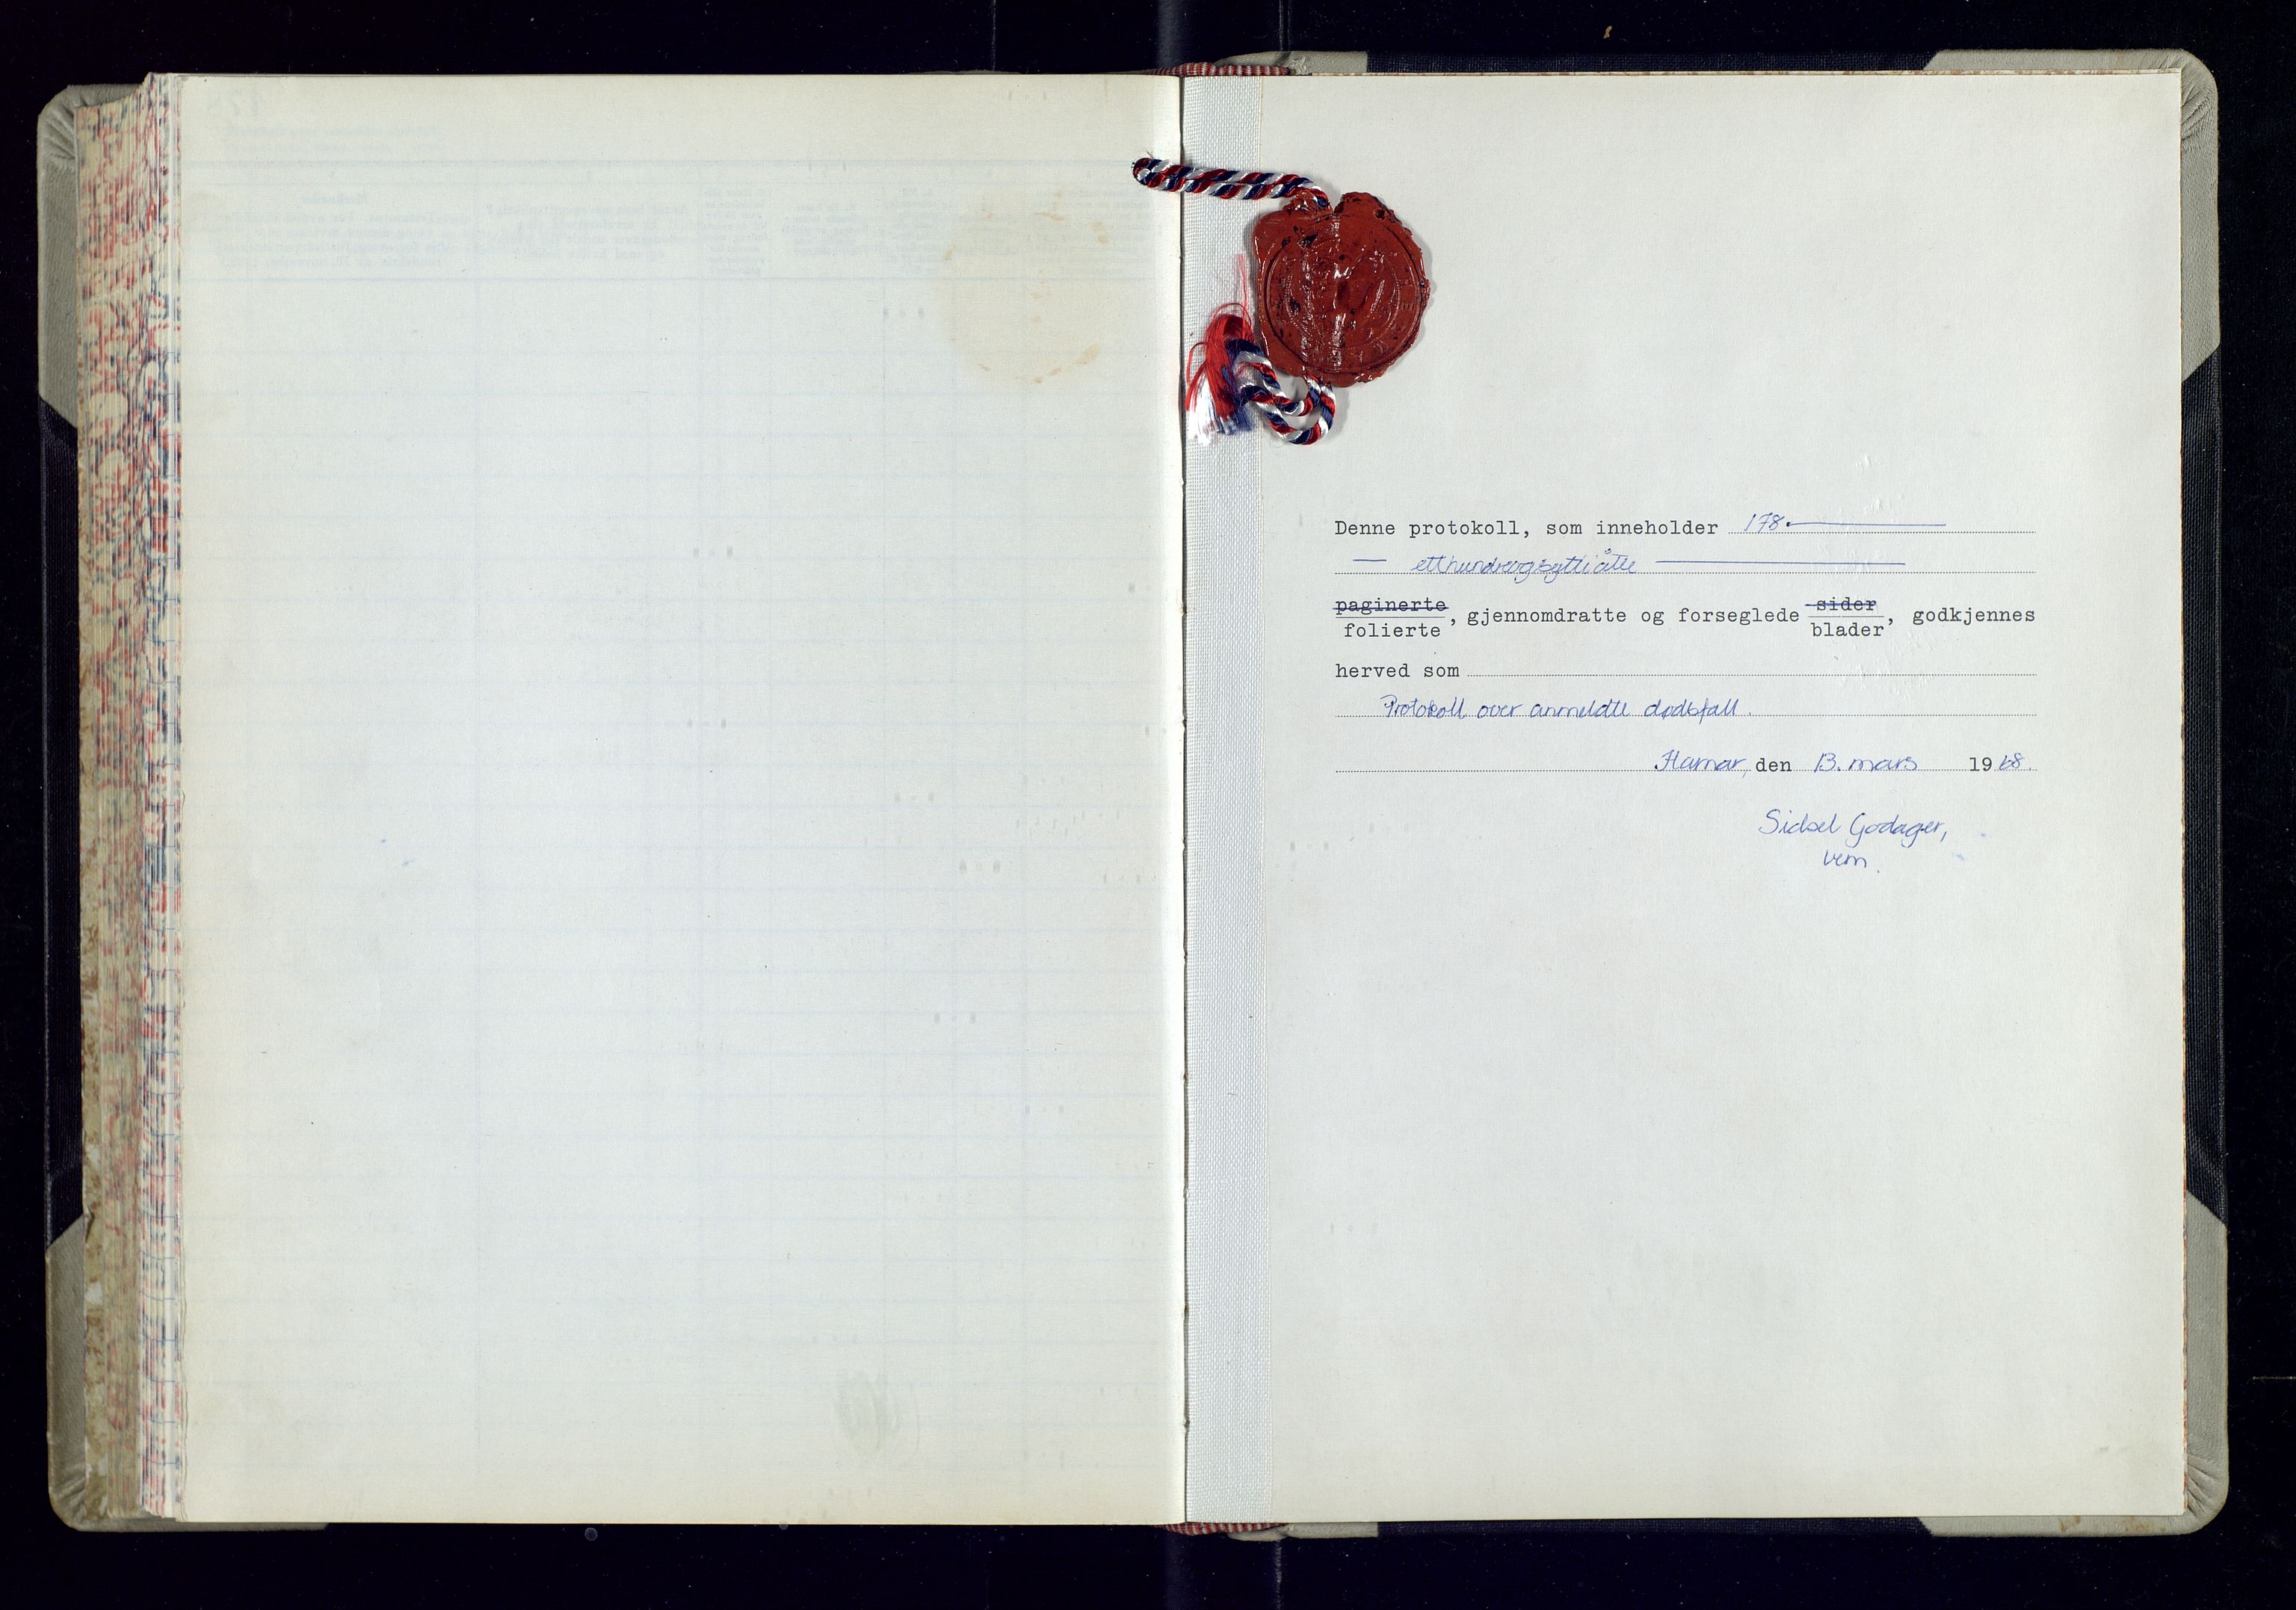 Denne protokoll, som inneholder 178.
— etthundreogsyttiåtte —
paginerte
folierte, gjennomdratte og forseglede sider
blader, godkjennes
herved som
Protokoll over anmeldte dødsfall.
Hamar, den 13. mars 1968.
Sidsel Godager,
vem.